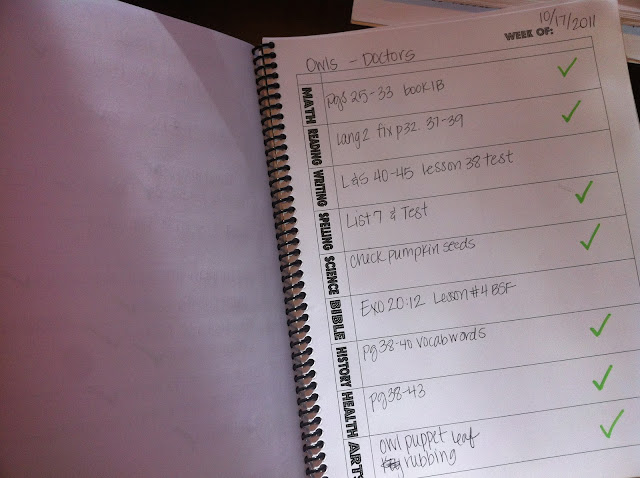 10/17/2011
WEEK OF:
Owls - Doctors
MATH pgs 25-33 book 1B
READING Lang 2 fix p32. 37-39
WRITING L&S 40-45 Lesson 38 test
SPELLING List 7 & Test
SCIENCE check pumpkin seeds
BIBLE Exo 20:12 Lesson #4 BSF
HISTORY pg 38-40 vocab words
HEALTH pg 38-43
ART: owl puppet leaf
rubbing